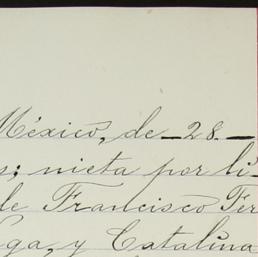 México, de - 28 -
s; nieta por li-
de Francisco Fer
ga, y Catalina